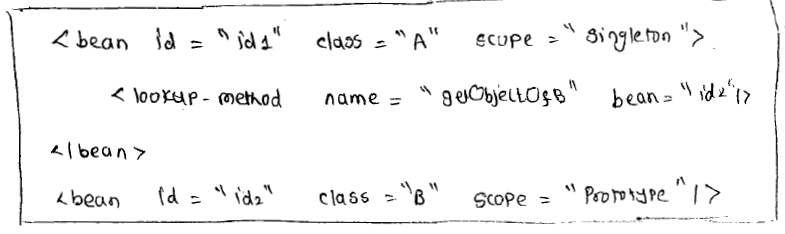 <bean id = "id1" class = "A" scope = "singleton">
<lookup-method name = "getObjectOfB" bean = "id2"/>
</bean>
<bean id = "id2" class = "B" scope = "Prototype"/>